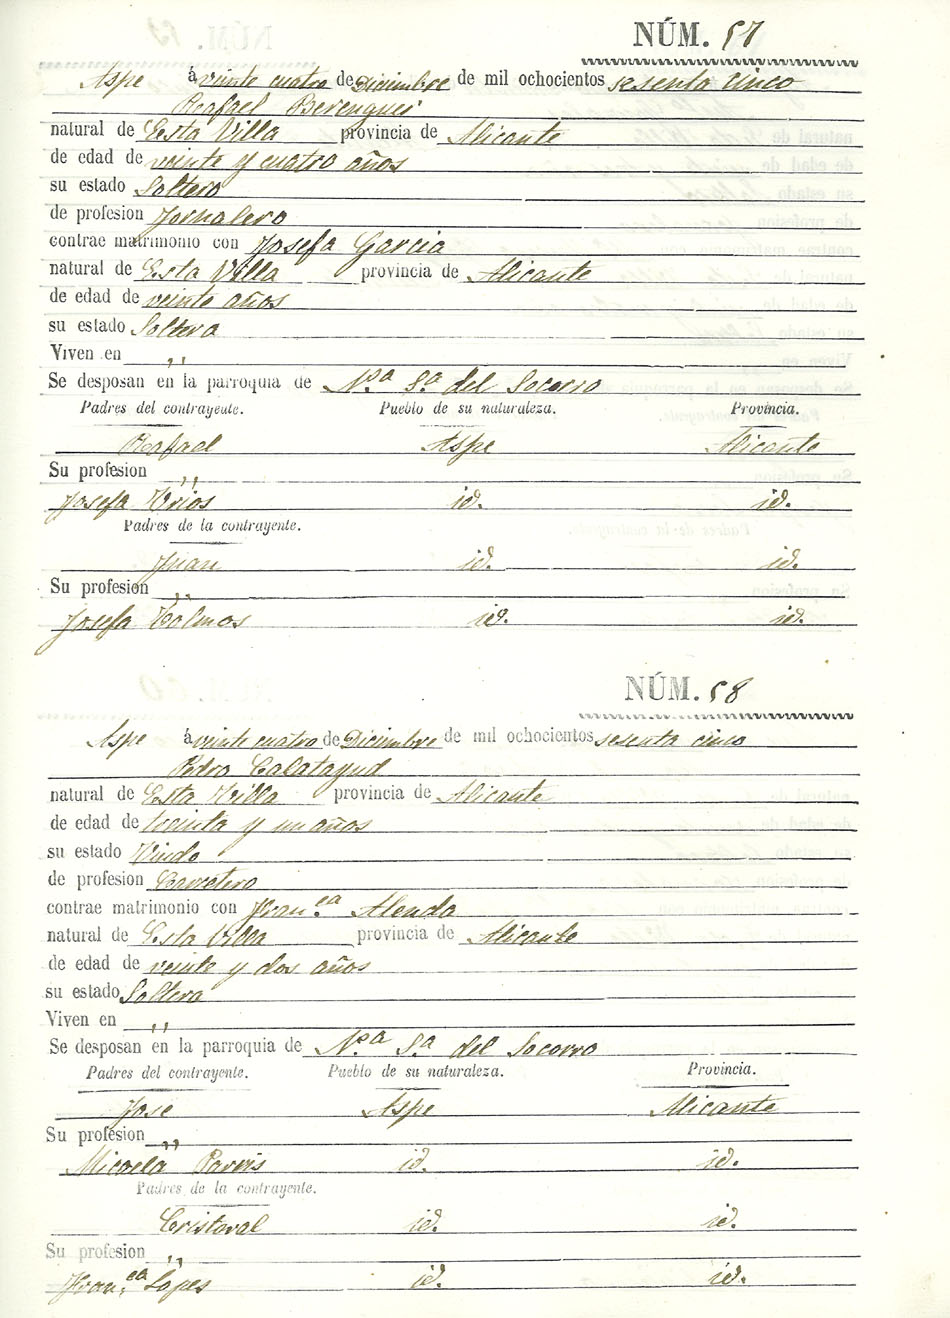 NÚM. 57
Aspe á veinte cuatro de Diciembre de mil ochocientos sesenta cinco
Rafael Berenguer
natural de Esta Villa provincia de Alicante
de edad de veinte y cuatro años
su estado Soltero
de profesion Jornalero
contrae matrimonio con Josefa Garcia
natural de Esta Villa provincia de Alicante
de edad de veinte años
su estado Soltera
Viven en ,,
Se desposan en la parroquia de N.ª S.ª del Socorro
Padres del contrayente. Pueblo de su naturaleza. Provincia.
Rafael Aspe Alicante
Su profesion ,,
Josefa id. id.
Padres de la contrayente.
Juan id. id.
Su profesion ,,
Josefa id. id.
NÚM. 58
Aspe á veinte cuatro de Diciembre de mil ochocientos sesenta cinco
Pedro Calatayud
natural de Esta Villa provincia de Alicante
de edad de treinta y un años
su estado Viudo
de profesion Carretero
contrae matrimonio con Fran.ca Alenda
natural de Esta Villa provincia de Alicante
de edad de veinte y dos años
su estado Soltera
Viven en ,,
Se desposan en la parroquia de N.ª S.ª del Socorro
Padres del contrayente. Pueblo de su naturaleza. Provincia.
Jose Aspe Alicante
Su profesion ,,
Micaela id. id.
Padres de la contrayente.
Cristoval id. id.
Su profesion ,,
Fran.ca Lopes id. id.